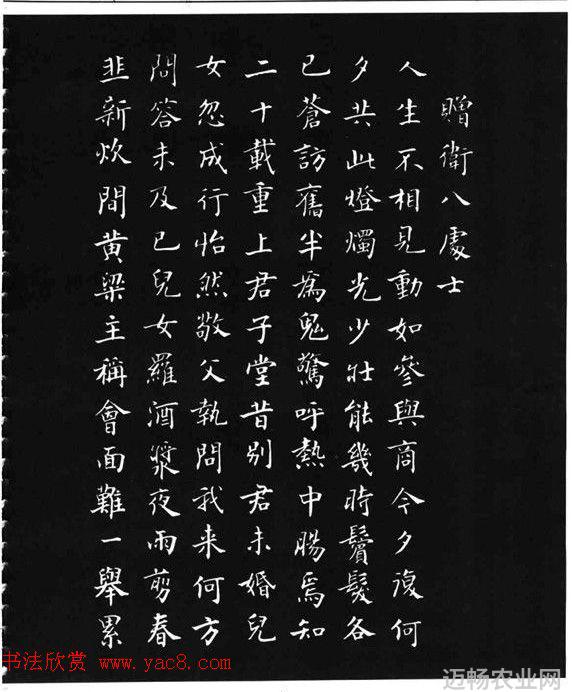 贈衛八處士
人生不相見動如參與商今夕復何
夕共此燈燭光少壯能幾時鬢髮各
已蒼訪舊半爲鬼驚呼熱中腸焉知
二十載重上君子堂昔別君未婚兒
女忽成行怡然敬父執問我来何方
問答未及已兒女羅酒漿夜雨剪春
韭新炊間黄梁主稱會面難一舉累
书法欣赏 www.yac8.com
迈畅农业网